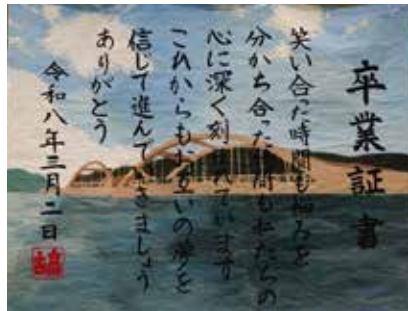 卒業証書
笑い合った時間も悩みを
分かち合った時間も私たちの
心に深く刻まれています
これからもお互いの夢を
信じて進んでいきましょう
ありがとう
令和八年三月二日